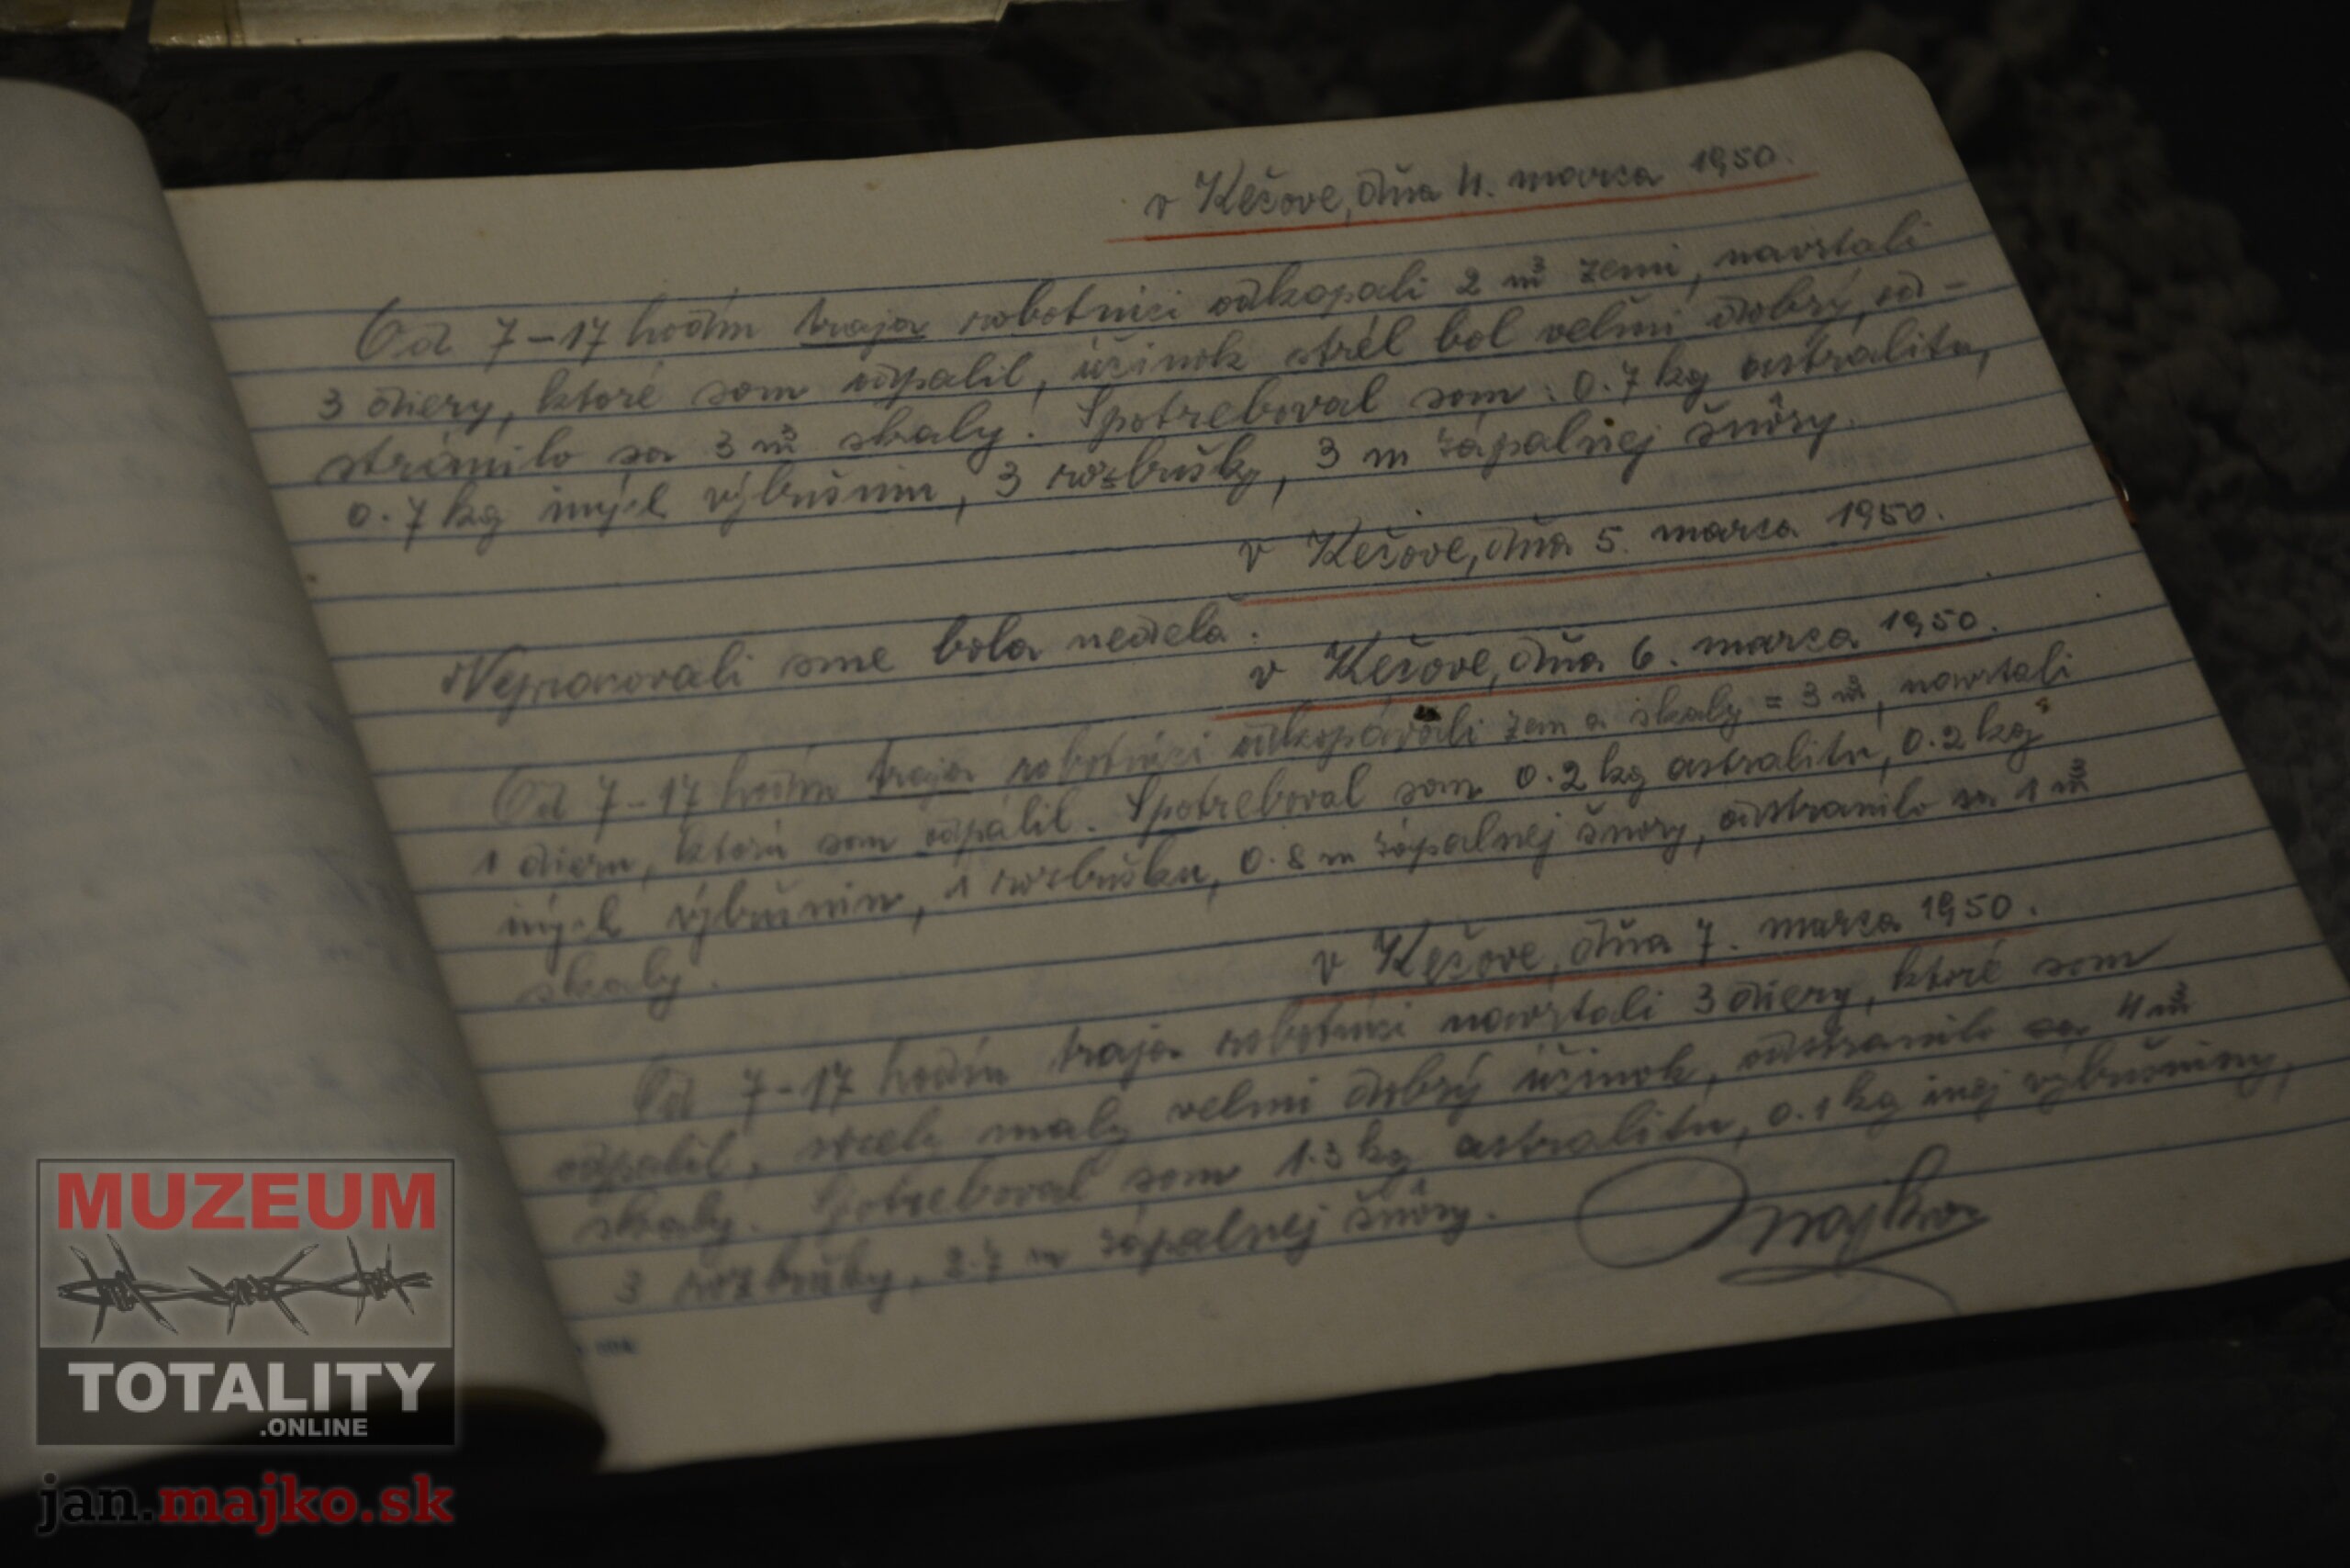 v Kečove, dňa 4. marca 1950.
Od 7-17 hodín traja robotníci odkopali 2 m³ zemi, navrtali
3 diery, ktoré som odpalil, účinok striel bol veľmi dobrý, od-
stránilo sa 3 m³ skaly. Spotreboval som: 0.7 kg astralitu,
0.7 kg iných výbušnin, 3 rozbušky, 3 m zápalnej šnôry.
v Kečove, dňa 5. marca 1950.
Nepracovali sme bola nedeľa.
v Kečove, dňa 6. marca 1950.
Od 7-17 hodín traja robotníci odkopávali zem a skaly = 3 m³, navrtali
1 dieru, ktorú som odpálil. Spotreboval som 0.2 kg astralitu, 0.2 kg
iných výbušnin, 1 rozbušku, 0.8 m zápalnej šnôry, odstranilo sa 1 m³
skaly.
v Kečove, dňa 7. marca 1950.
Od 7-17 hodín traja robotníci navrtali 3 diery, ktoré som
odpalil, maly veľmi dobrý účinok, odstranilo sa 4 m³
skaly. Spotreboval som 1.3 kg astralitu, 0.1 kg inej výbušniny,
3 rozbušky, 2.7 m zápalnej šnôry.
Majko
MUZEUM
TOTALITY
.ONLINE
jan.majko.sk